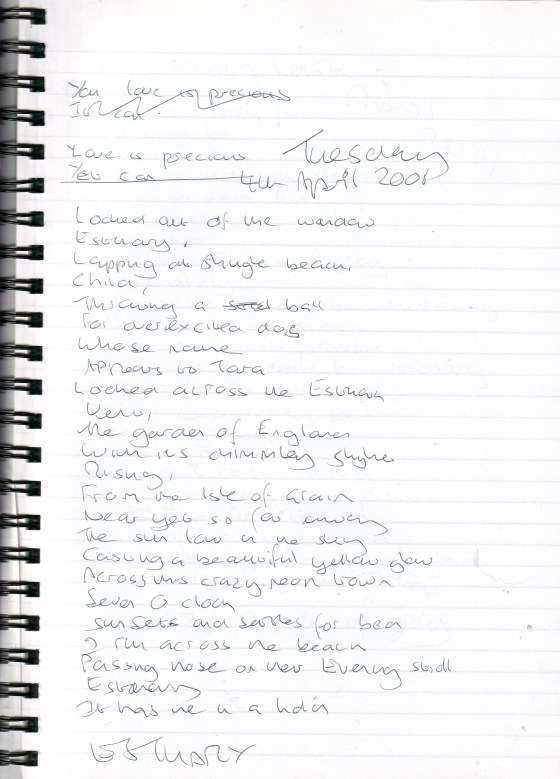 You love is precious
It can.
Love is precious Tuesday
Yet can 4th April 2001
Looked out of the window
Estuary,
Lapping at shingle beach,
Child,
Throwing a ball
For overexcited dog
Whose name
Appears to Tara
Looked across the Estuary
Kent,
the garden of England
With its chimmley
Rising,
From the Isle of Grain
Near yet so far away
The sun low in the sky
Casting a beautiful yellow glow
Across this crazy neon town
Seven O clock
sun sets and settles for bed
I run across the beach
Passing those on their Evening stroll
Estuary
It has me in a
ESTUARY